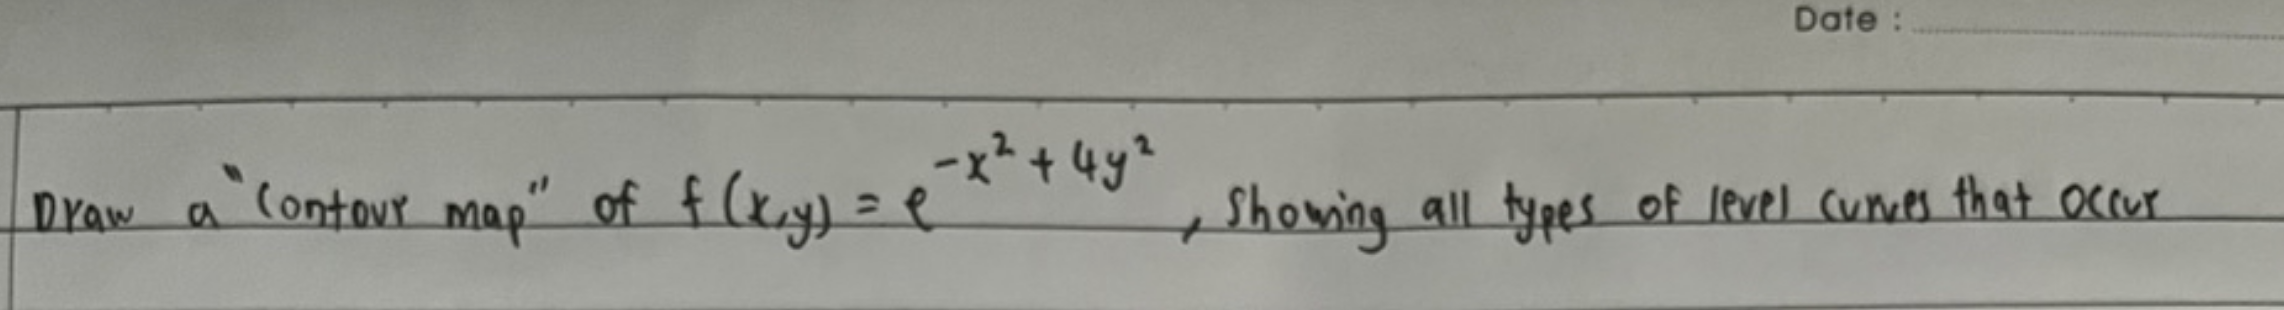 Date :
Draw a "contour map" of f(x,y) = e^{-x² + 4y²}, showing all types of level curves that occur